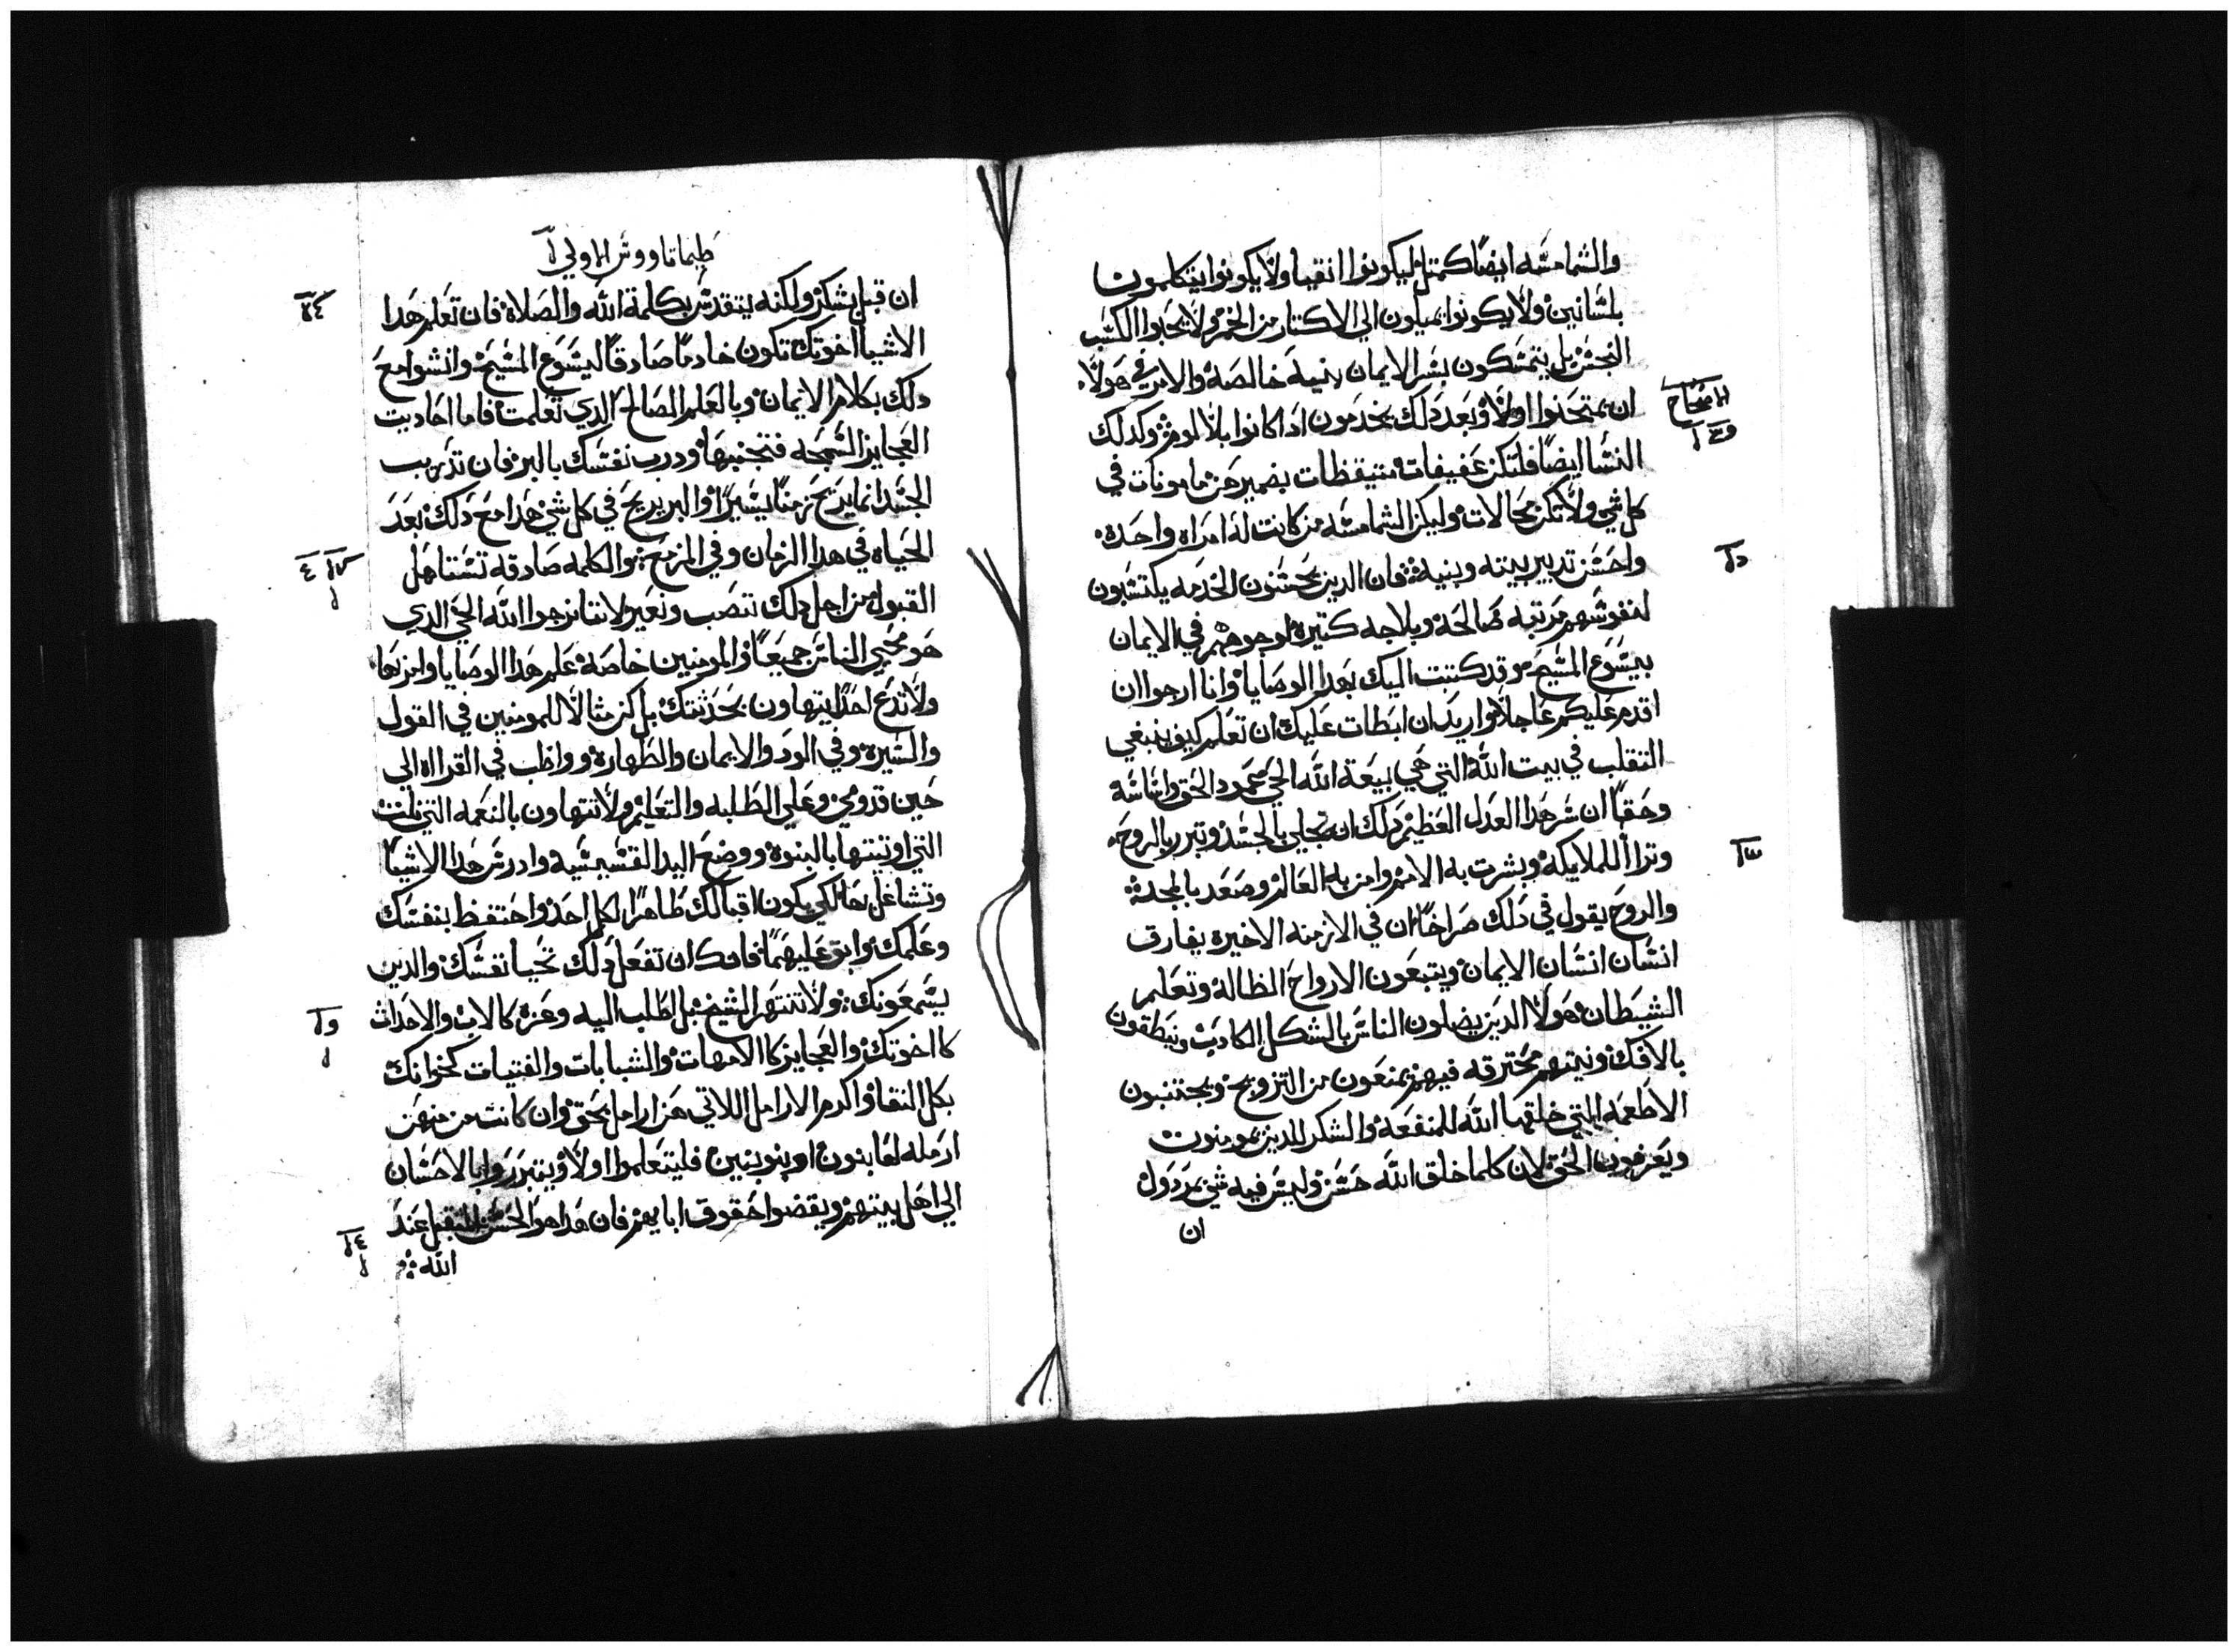 والشمامسه ايضا كمتل ليكونوا انقيا ولا يكونوا يتكلمون
بلسانين ولا يكونوا يميلون الي الاكتار من الخمر ولا يحبوا الكسب
النجس بل يتمسكون بسر الايمان بنية خالصة والامر في هولاء
ان يمتحنوا اولا وبعد دلك يخدمون ادا كانوا بلا لوم وكدلك
النسا ايضا فلتكن عفيفات متيقظات بضميرهن مامونات في
كل شي ولا تكن محالات وليكن الشمامسه من كانت له امراه واحده
واحسن تدبير بيته وبنيه فان الدين يحسنون الخدمه يكتسبون
لنفوسهم مرتبه صالحة وبلاجه كتيرة لوجوههم في الايمان
بيسوع المسيح وقد كتبت اليك بهدا الوصايا وانا ارجوا ان
اقدم عليكم عاجلا واريد ان ابطات عليك ان تعلم كيف ينبغي
التقلب في بيت الله التي هي بيعة الله الحي عمود الحق واساسه
وحقا ان سر هدا العدل العظيم دلك انه تجلي بالجسد وتبرر بالروح
وترا اللملايكة وبشرت به الامم وامن به العالم وصعد بالمجد
والروح يقول في دلك صراخا ان في الازمنه الاخيره يفارق
انسان انسان الايمان ويتبعون الارواح الظالة وتعلم
الشيطان هولا الدين يضلون الناس بالشكل الكادب وينطقون
بالافك ونيتهم محترقه فيهم يمنعون من التزويج ويجتنبون
الاطعمه التي خلقها الله للمنفعة والشكر للدين يومنوت
ويعرفون الحق لان كلما خلق الله حسن وليس فيه شي مردول
ان
الاصحاح
د ا
س ا
طيماتاووس الاولي
ان قبل بشكر ولكنه يتقدس بكلمة الله والصلاة فان تعلم هدا
الاشيا اخوتك تكون خادما صادقا ليسوع المسيح وانشوا مع
دلك بكلام الايمان وبالعلم الصالح الدي تعلمت فاما احاديت
العجايز السمجه فتجنبها ودرب نفسك بالبر فان تدريب
الجسد انما يربح زمنا يسيرا والبر يربح في كل شي هدا مع دلك بعد
الحياه في هدا الزمان وفي المزمع والكلمه صادقه تستاهل
القبول من اجل دلك نتصب ونعير لاننا نرجوا الله الحي الدي
هو محيي الناس جميعا والمومنين خاصة علم هدا الوصايا وامر بها
ولا تدع احدا يتهاون بحدثتك بل كن مثالا للمومنين في القول
والسيره وفي الود والايمان والطهارة وواظب في القرااه الي
حين قدومي وعلي الطلبه والتعليم ولا تتهاون بالنعمه التي نلت
التي اوتيتها بالنبوة ووضع اليد القسيسيه وادرس هدا الاشيا
وتشاغل بها لكي يكون اقبالك ظاهرا لكل احد واحتفظ بنفسك
وعلمك وابق عليهما فانك ان تفعل دلك تحيا نفسك والدين
يسمعونك ولا تنتهر الشيخ بل اطلب اليه وعزه كالاب والاحداث
كاخوتك والعجايز كا الامهات والشبابات والفتيات كخواتك
بكل النقا واكرم الارامل اللاتي هن ارامل بحق وان كانت من منهن
ارمله لها بنون او بنو بنين فليتعلموا اولا ويتبرروا بالاحسان
الي اهل بيتهم ويقضوا حقوق ابايهم فان هدا هو الحسن المتقبل عند
الله